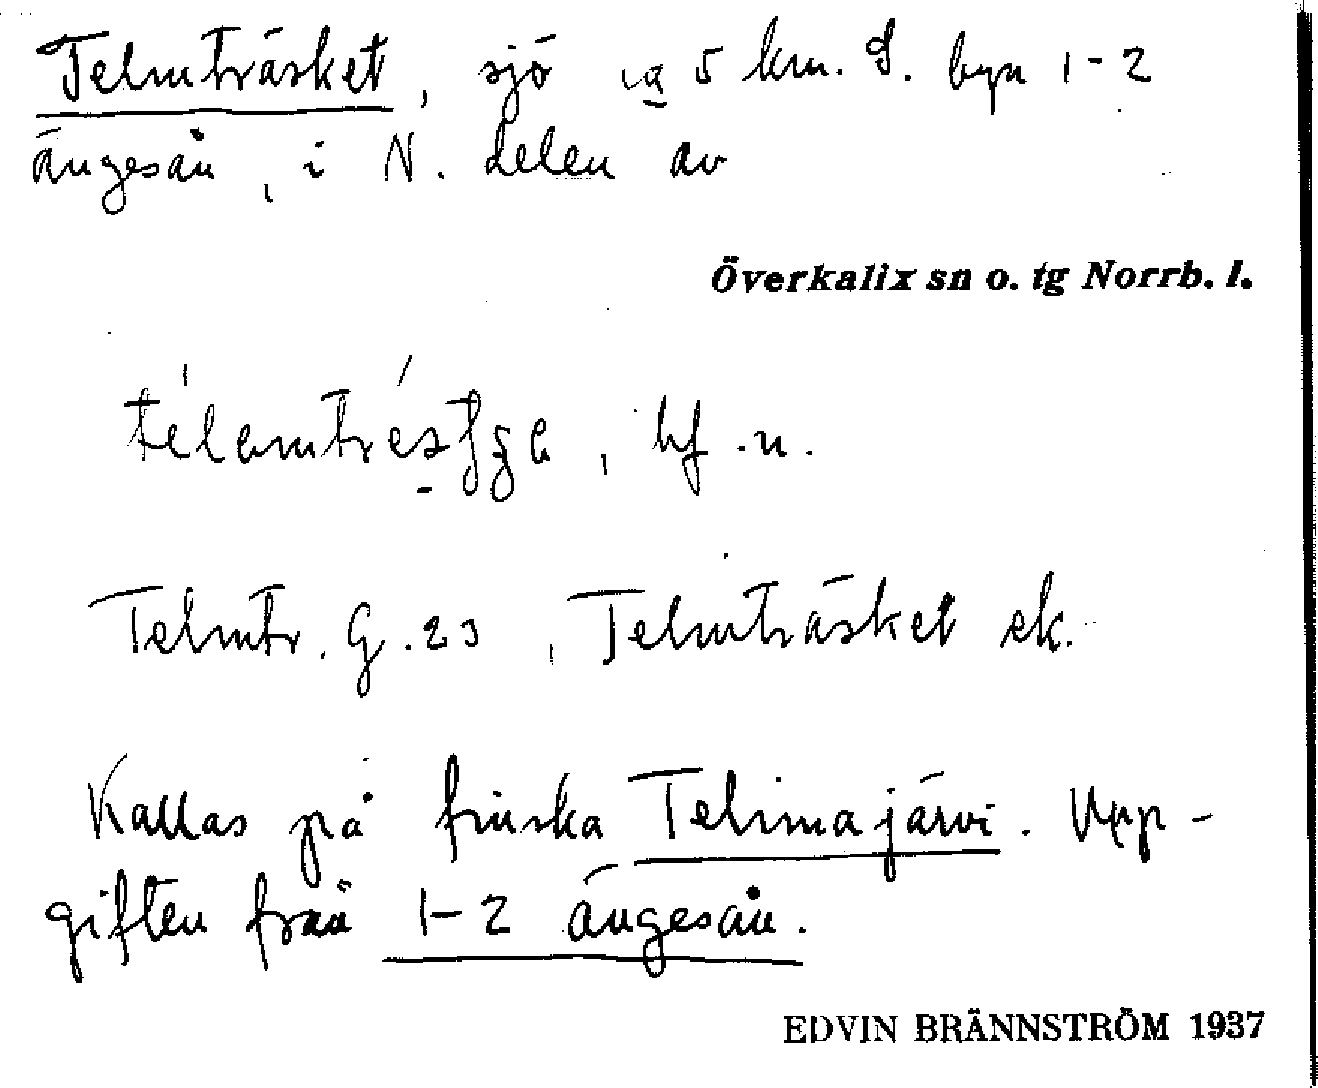 Telmträsket, sjö ca 5 km. S. byn 1-2
ängesån, i N. delen av
Överkalix sn o. tg Norrb. l.
bf. n.
Telmtr. G. 23, Telmträsket ek.
Kallas på finska Telimajärvi. Upp-
giften från 1-2 ängesån.
EDVIN BRÄNNSTRÖM 1937